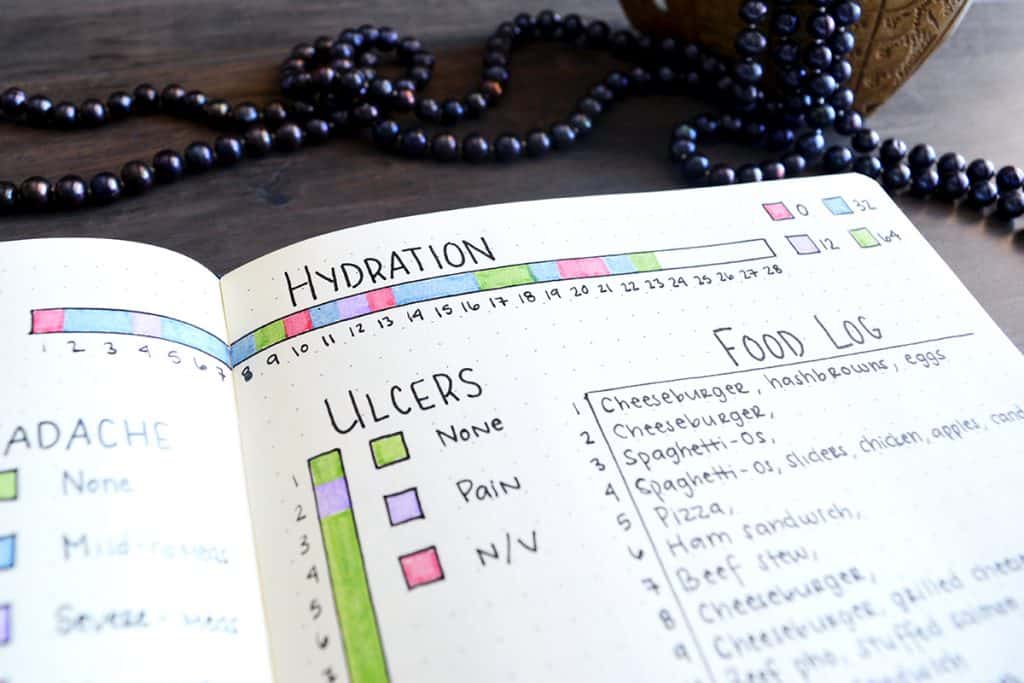 1 2 3 4 5 6 7
ADACHE
None
Mild - no meds
Severe - meds
HYDRATION
8 9 10 11 12 13 14 15 16 17 18 19 20 21 22 23 24 25 26 27 28
0 32
12 64
ULCERS
None
Pain
N/V
1
2
3
4
5
6
7
FOOD LOG
1 Cheeseburger, hashbrowns, eggs
2 Cheeseburger,
3 Spaghetti-os,
4 Spaghetti-os, sliders, chicken, apples, cand
5 Pizza,
6 Ham sandwich,
7 Beef stew,
8 Cheeseburger,
9 Cheeseburger, grilled cheese
Beef pho, stuffed salmon
sandwich